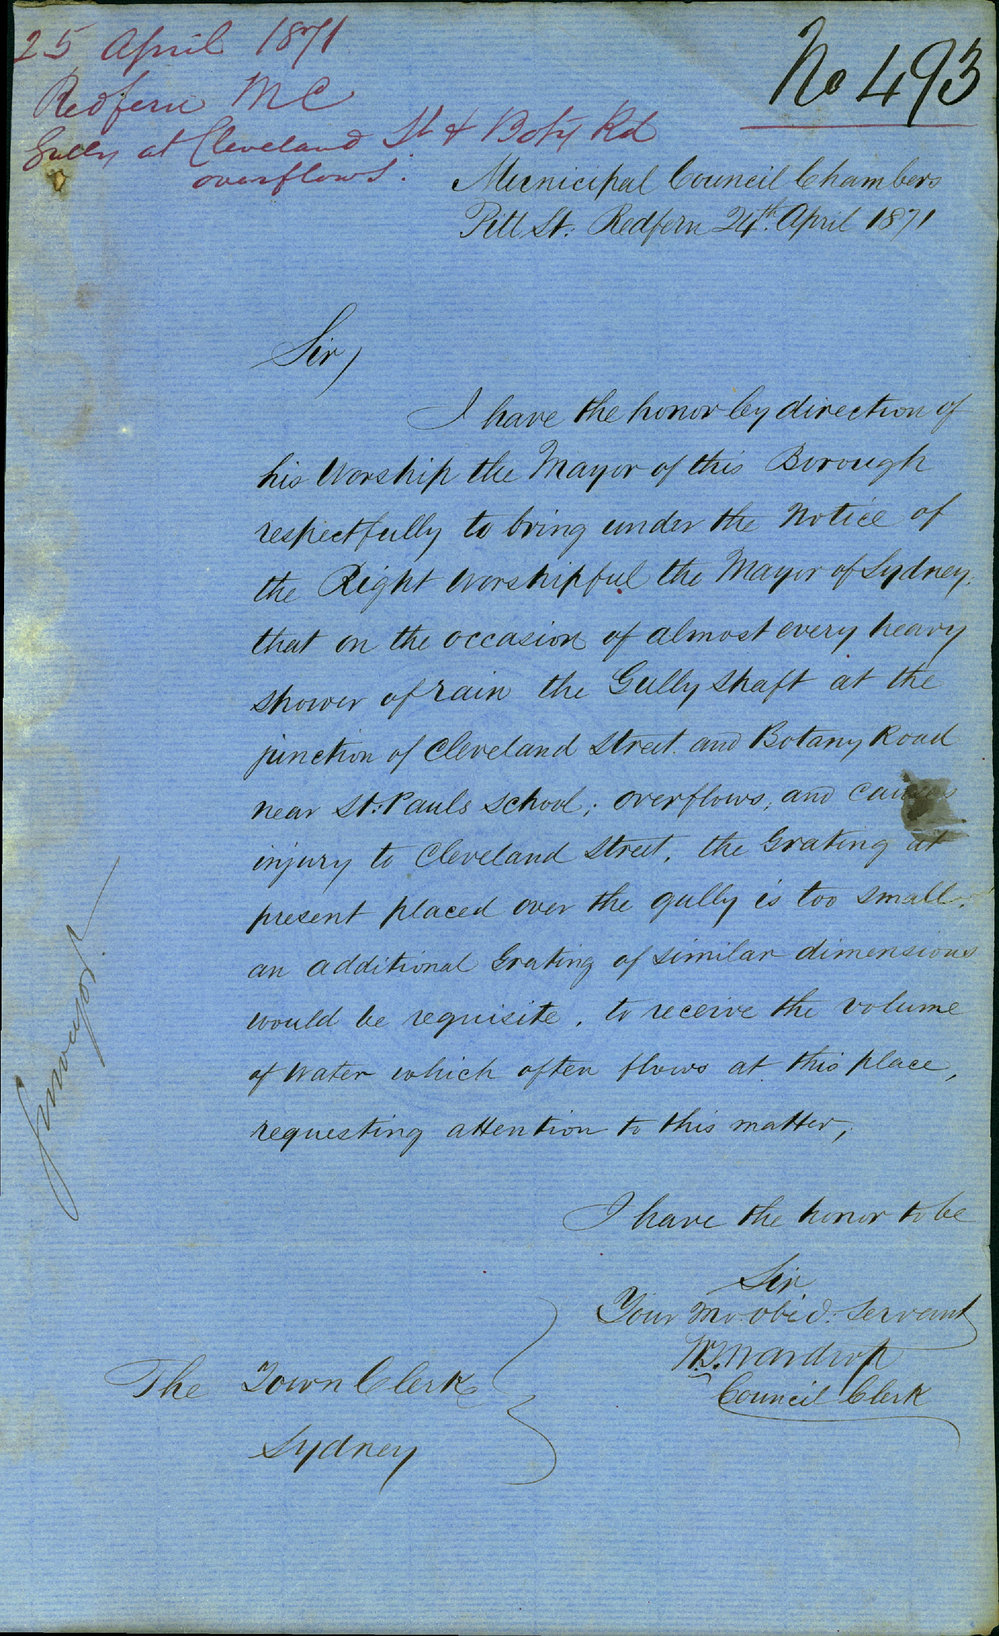 25 April 1871
Redfern MC
Gully at Cleveland St & Boty Rd
overflows.
No 493
Municipal Council Chambers
Pitt St. Redfern 24th. April 1871
Sir,
I have the honor by direction of
his Worship the Mayor of this Borough
respectfully to bring under the Notice of
the Right Worshipful the Mayor of Sydney,
that on the occasion of almost every heavy
shower of rain the Gully shaft at the
junction of Cleveland Street and Botany Road
near St. Pauls School; overflows, and causes
injury to Cleveland Street, the Grating at
present placed over the gully is too small,
an additional Grating of similar dimensions
would be requisite, to receive the volume
of Water which often flows at this place,
requesting attention to this matter,
I have the honor to be
Sir
Your Mo. obed. Servant
Wardrop
Council Clerk
The Town Clerk
Sydney
Surveyor